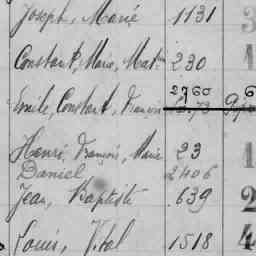 Joseph, Marie 1131 3
Constant, Marie, Mat. 230 1
2760 6
Emile, Constant, François
Henri, François, Marie 23 1
Daniel 2406
Jean, Baptiste 639 2
Louis, Vital 1518 4